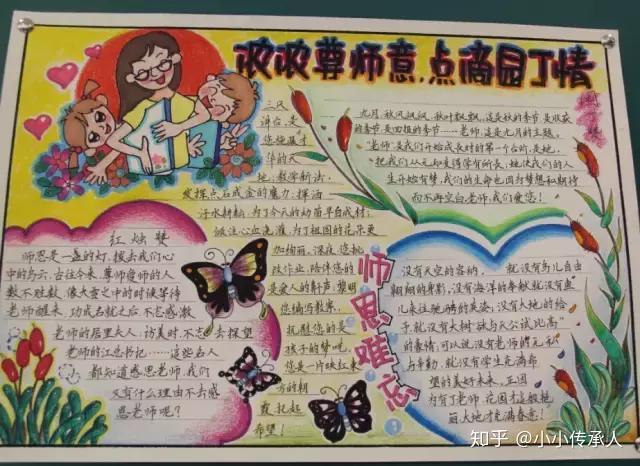 浓浓尊师意,点滴园丁情
三尺
讲台,是
您施展才
华的天
地;教学新法,
发挥点石成金的魔力;挥洒
汗水耕耘,为了今天的幼苗早成材;
倾注心血浇灌,为了祖国的花朵更
加绚丽。深夜,您批
改作业,陪伴您的
是爱人的鼾声;黎明
您编写教案,
抚慰您的是
孩子的梦呓。
您是一片映红东
方的朝
霞,托起
希望!
九月,秋风飒飒,秋叶飘飘,这是秋的季节,是收获
的季节,是回报的季节……老师,这是九月的主题。
老师是我们开始成长时的第一个台阶,是她,
把我们从无知变得学有所长,她使我们的人
生开始有梦,我们的生命也因为梦想和期待
而不再空白,老师,我们爱您!
红烛赞
师恩是一盏的灯,拨去我们心
中的乌云,古往今来,尊师爱师的人
数不胜数,像大雪之中的时候等待
老师醒来,功成名就之后不忘感激
老师的居里夫人;访美时,不忘去探望
老师的江总书记……这些名人
都知道感恩老师,我们
又有什么理由不去感
恩老师呢?
师恩难忘
没有天空的容纳,就没有鸟儿自由
翱翔的身影;没有海洋的奉献,就没有鱼
儿来往驰骋的英姿;没有大地的给
予,就没有大树欲与天公试比高
的豪情,可以说没有老师的无私
与辛勤,就没有学生充满希
望的美好未来。正因
为有了老师,花园才这般艳
丽,大地才充满春意!
知乎 @小小传承人